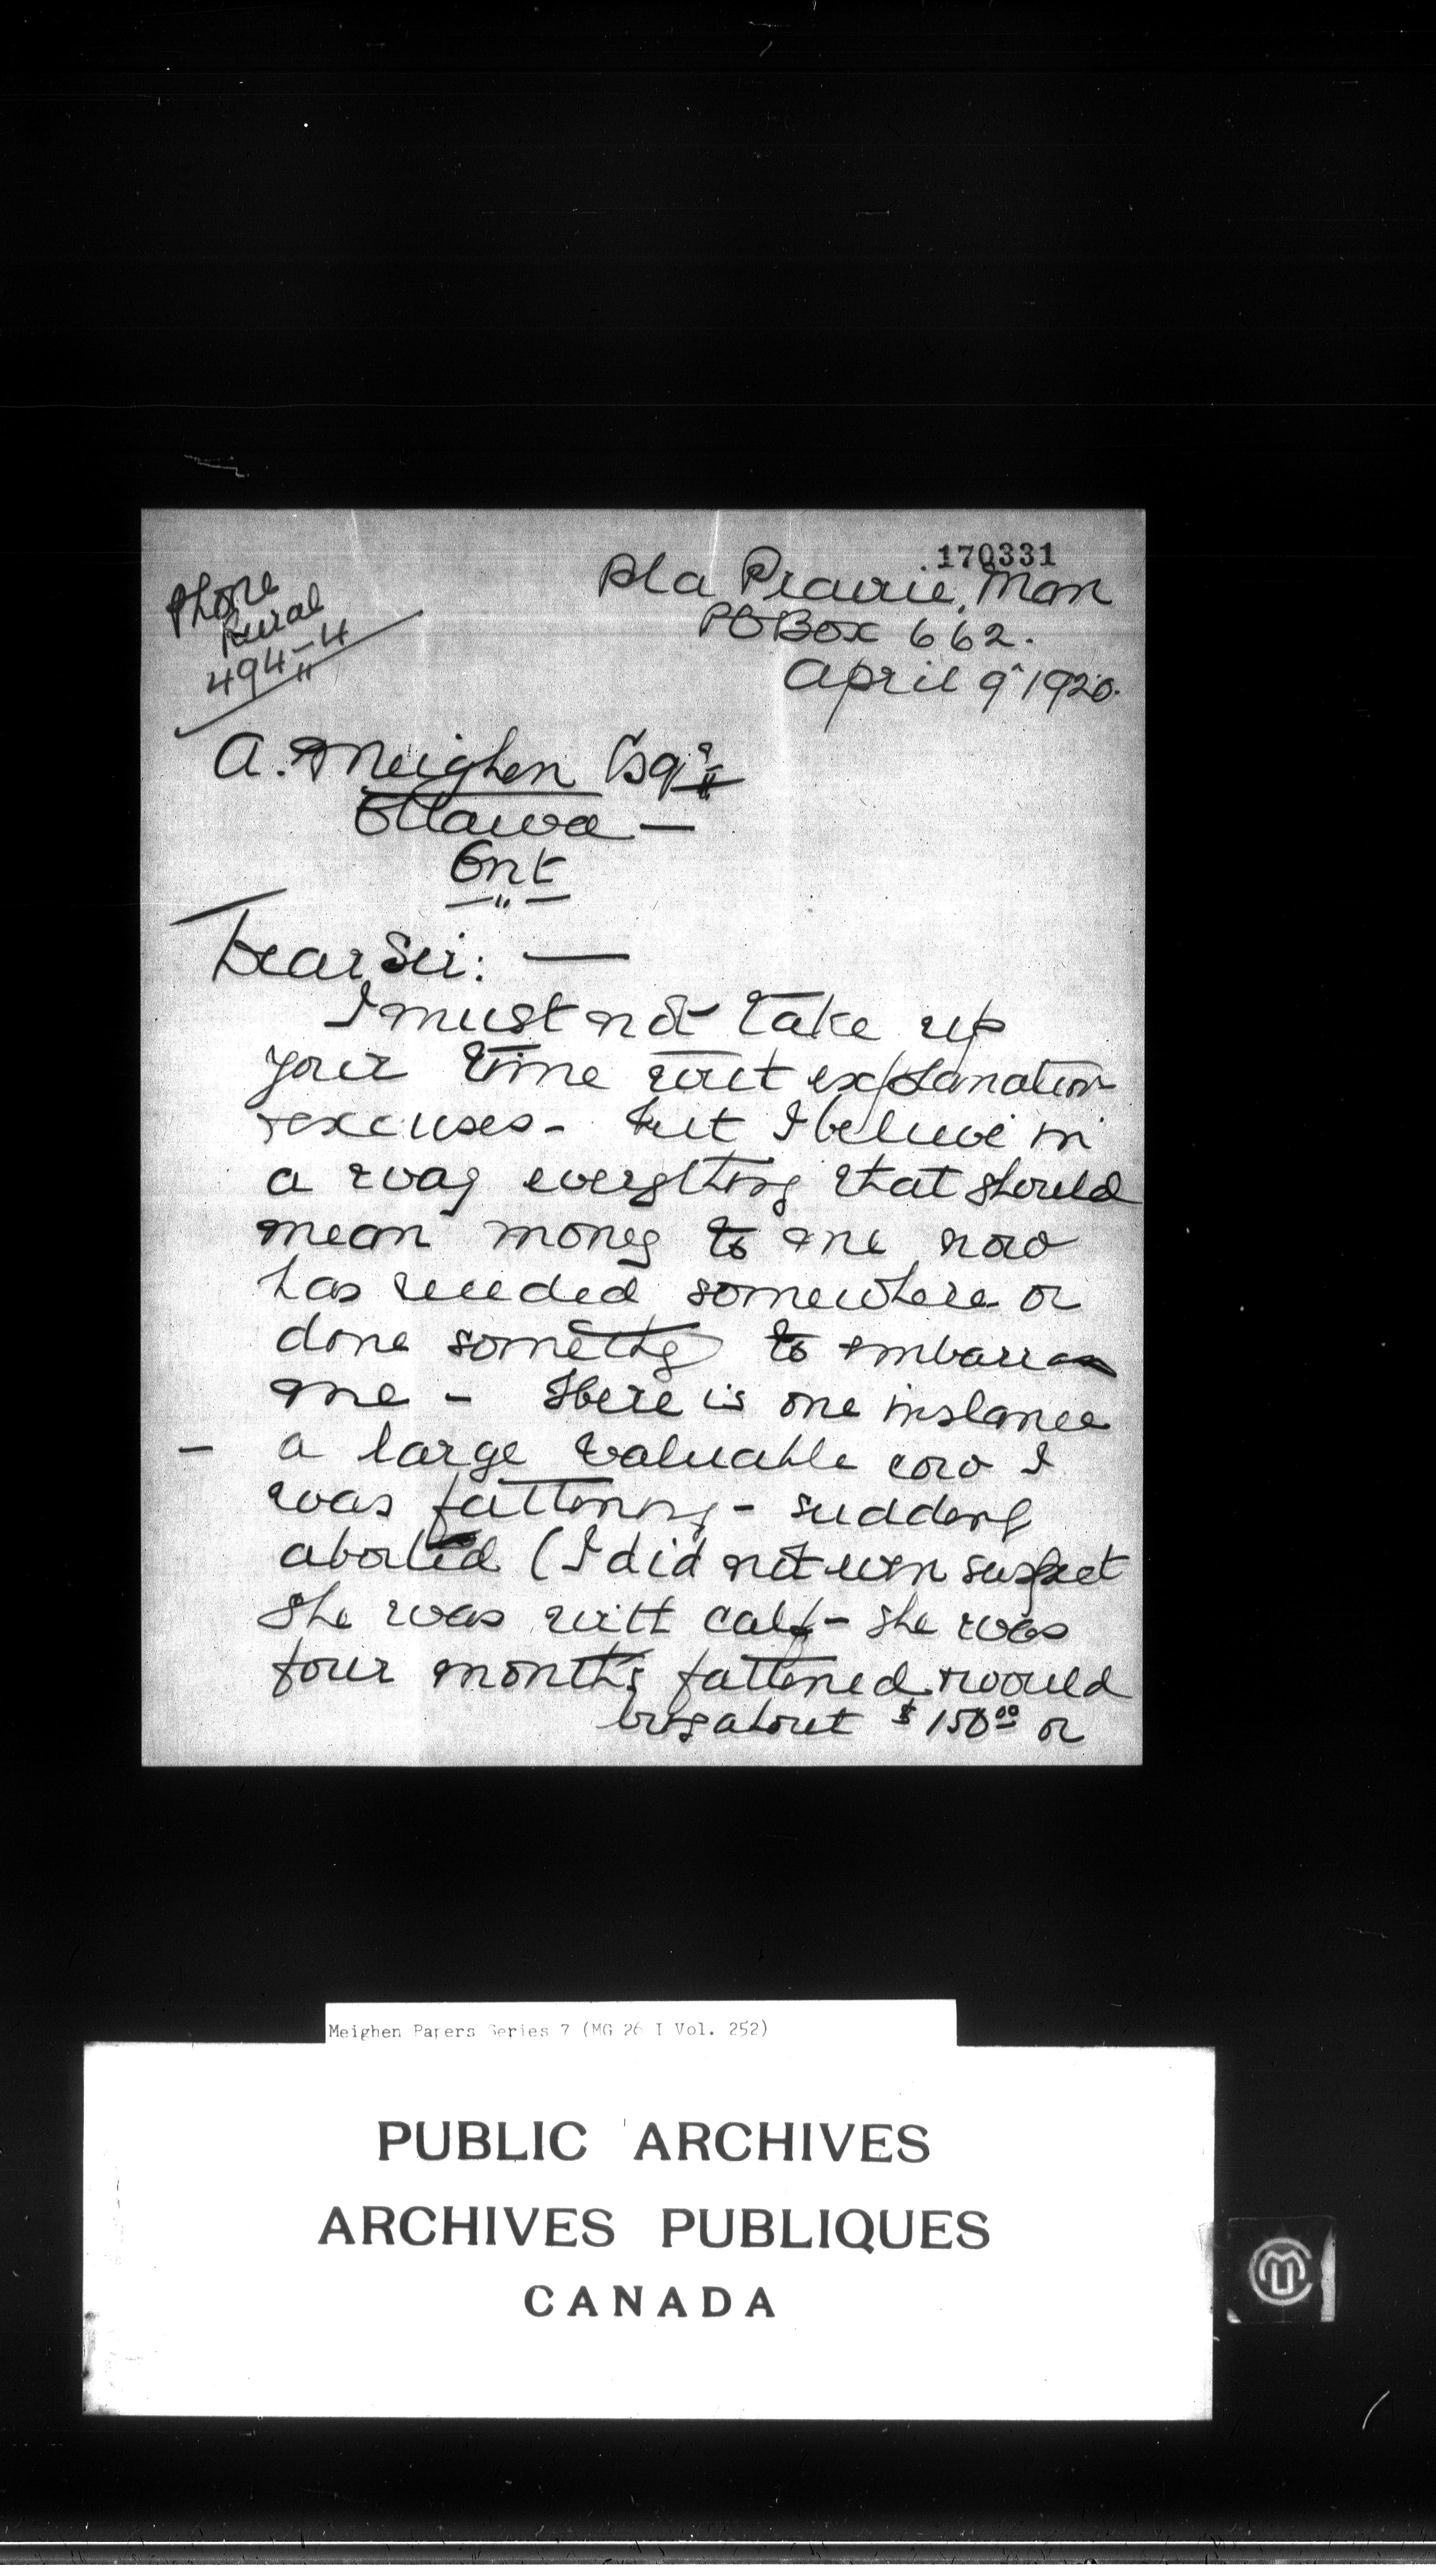 170331
Pla Prairie, Man
Phone
Rural
494-4
PO Box 662.
April 9" 1920.
A. Meighen Esqr
Ottawa —
Ont
Dear Sir: —
I must not take up
your time wit explanation
+ excuses - but I believe in
a way everything that should
mean money to me now
has somewhere or
done somethg to embarrass
me - Here is one instance
- a large valuable cow I
was fattening - suddenly
aborted (I did not even suspect
she was with calf - she was
four months fattened + would
bring about $150.00 or
Meighen Papers Series 7 (MG 26 I Vol. 252)
PUBLIC ARCHIVES
ARCHIVES PUBLIQUES
CANADA